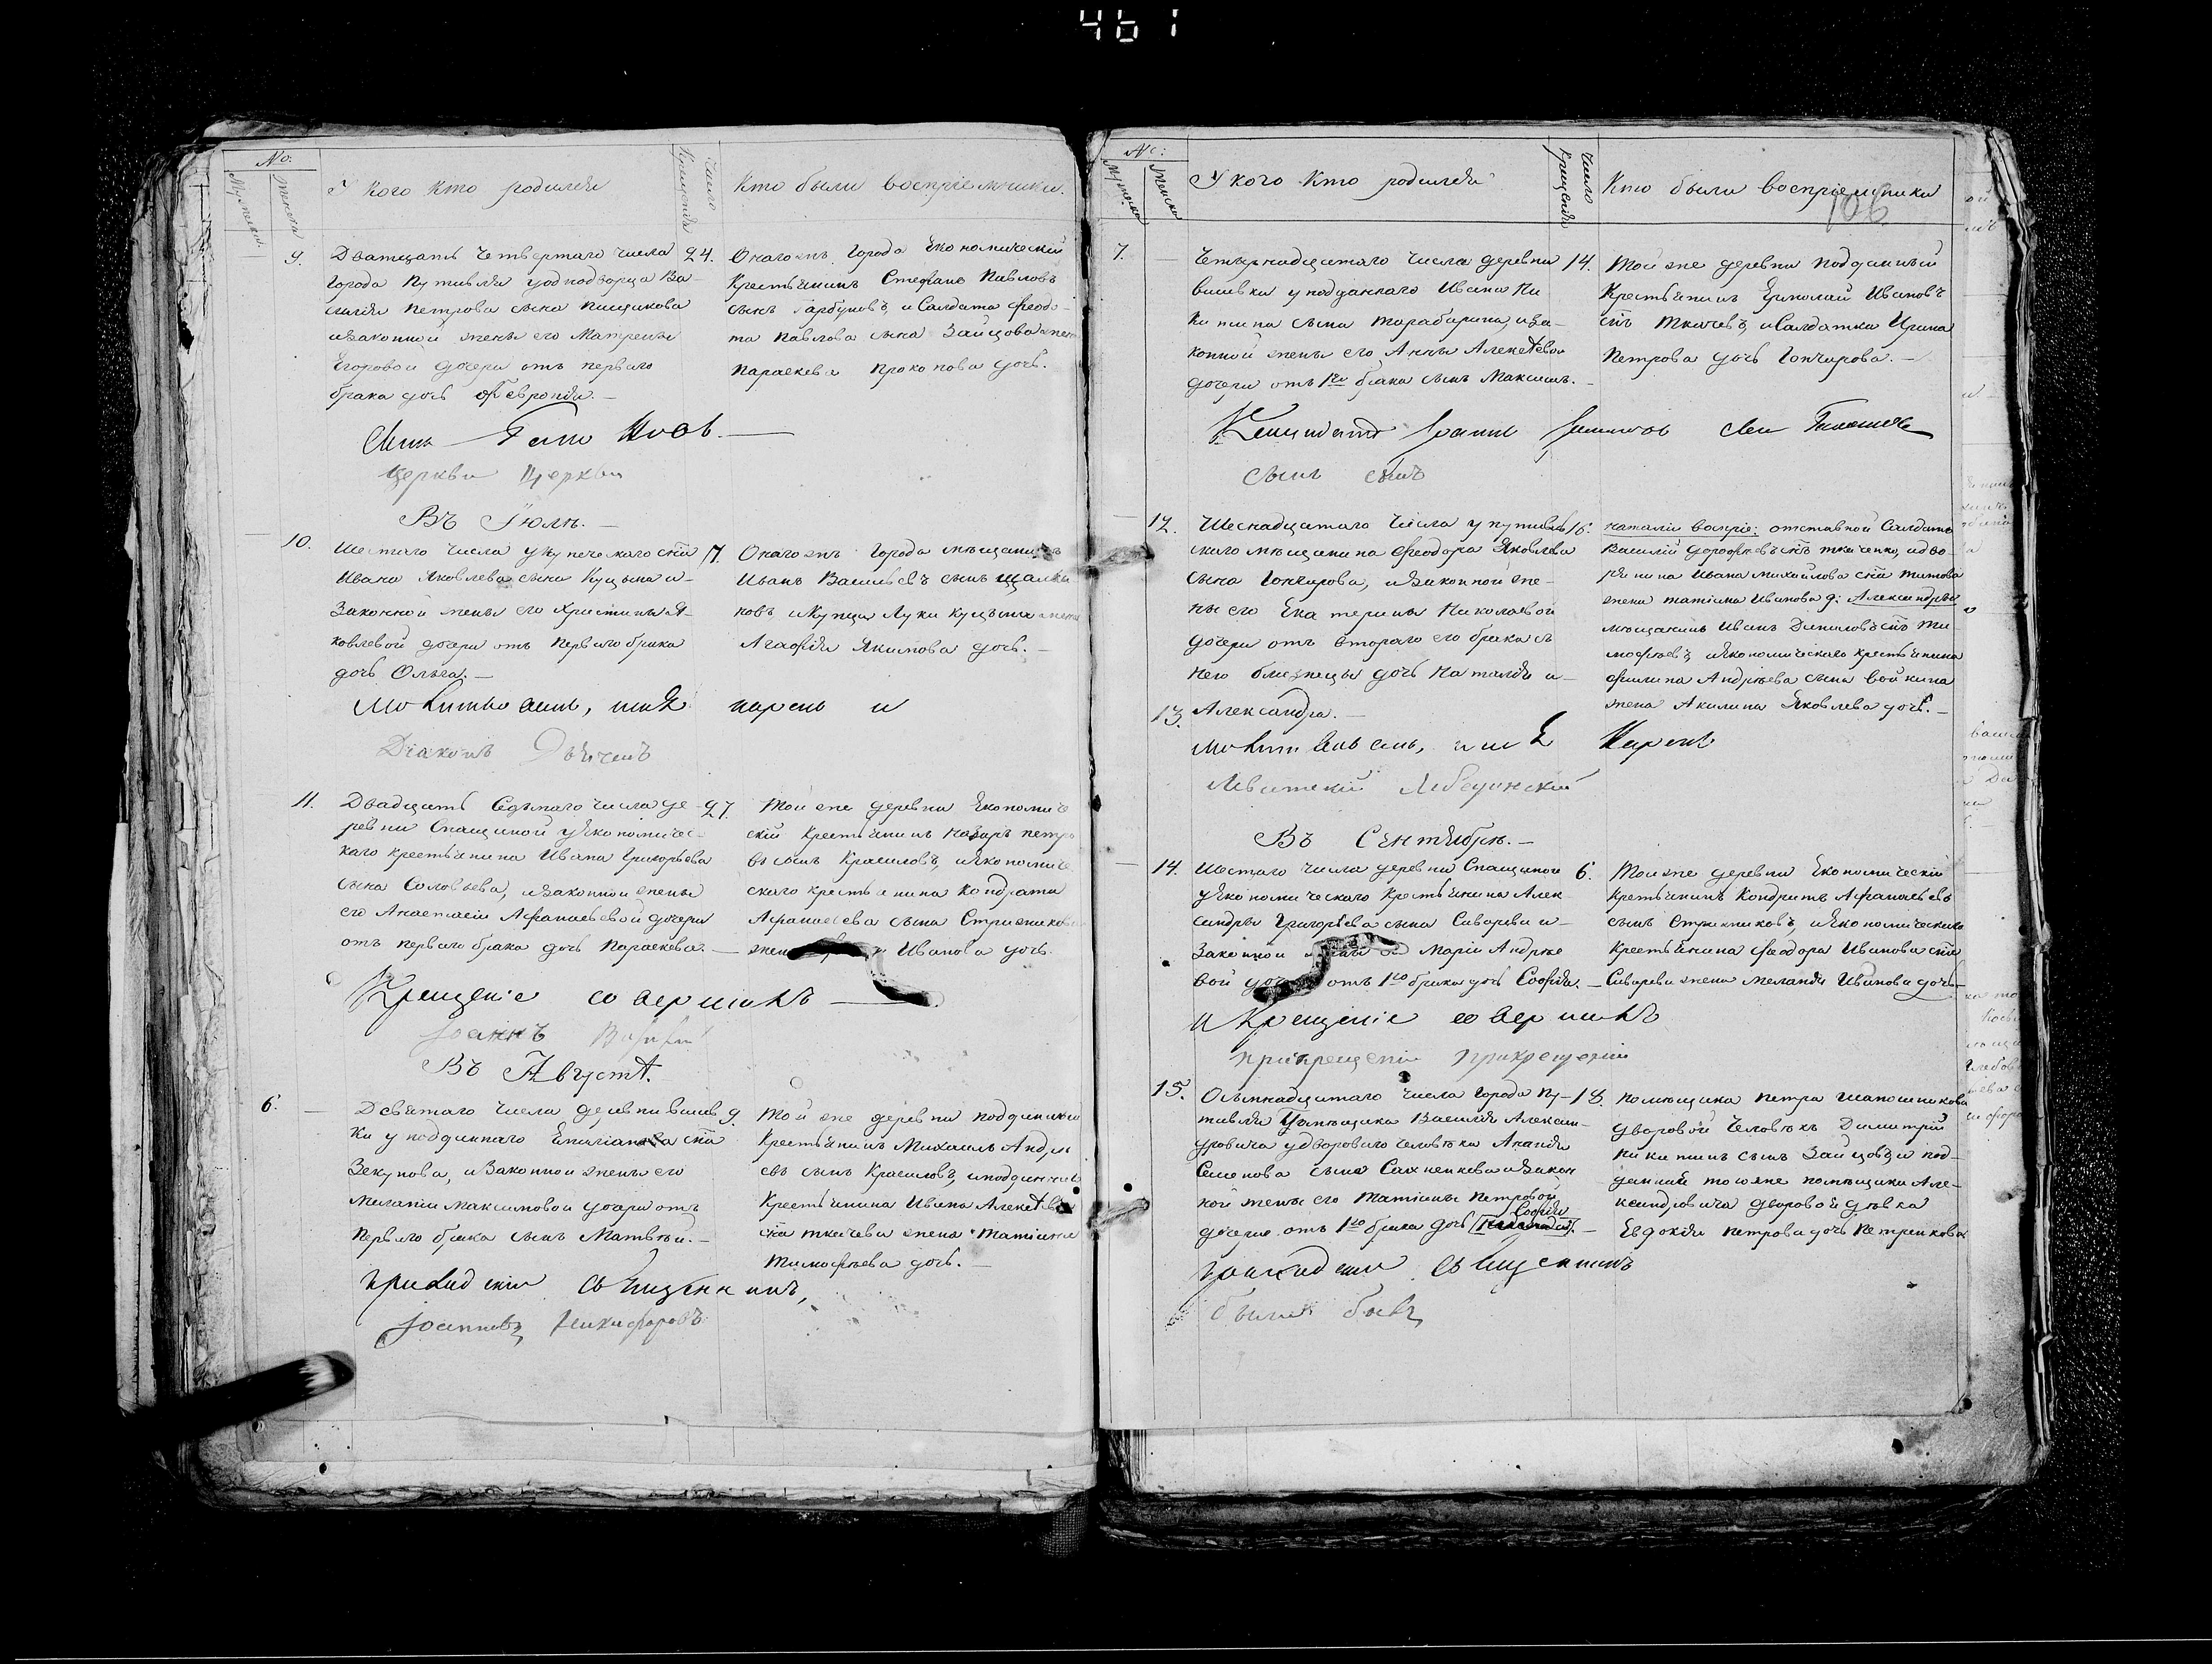 461
No:
Мужеска.
Женска
У кого кто родился
Число Крещенія
Кто были воспріемники.
9.
Дватцать четвертаго числа
города Путивля у однодворца Ва-
силія Петрова сына Пищикова
и законной жены его Матрены
Егоровой дочери отъ перваго
брака дочь Февронія.
24.
Онагожъ города Экономический
Крестьянинъ Стефанъ Павловъ
сынъ Гарбуновъ, и Салдата Феодо-
та Павлова сына Зайцова жена
Параскева Прокопова дочь.
церкви Церкви
Въ Іюлѣ.
10.
Шестаго числа у купеческаго сна
Ивана Яковлева сына Куцына и
Законной жены его Христины Я-
ковлевой дочери отъ перваго брака
дочь Ольга.
7.
Онагожъ города мещанинъ
Иванъ Васильевъ сынъ
новъ и купца Луки Куцына жена
Агафія Якимова дочь.
Діаконъ
11.
Двадцать Седьмаго числа де-
ревни Спащиной у Экономичес-
каго крестьянина Ивана Григорьева
сына Соловьева, и законной жены
его Анастасіи Афанасьевой дочери
отъ перваго брака дочь Параскева.
27.
Тойже деревни Экономиче
скій крестьянинъ Назаръ Петро
въ сынъ Красиловъ, и Экономиче
скаго крестьянина Кондрата
Афанасьева сына Стрижикова
жена Иванова дочь.
Крещеніе совершилъ
Іоаннъ
Въ Августѣ.
6.
Девятаго числа деревни Вишев
ки у подданнаго Емиліанова сна
Зекунова, и Законной жены его
Меланіи Максимовой дочери отъ
Перваго брака сынъ Матвѣй.
9.
Тойже деревни подданный
Крестьянинъ Михаилъ Андре
евъ сынъ Красиловъ, и подданнаго
Крестьянина Ивана Алексѣева
сна Ткачева жена Татіана
Тимофѣева дочь.
приходскій священникъ,
Іоанновъ Никифоровъ
No:
Мужеска
Женска
У кого кто родился
Число Крещенія
Кто были воспріемники
106
7.
Четырнадцатаго числа деревни
Вишевки у подданнаго Ивана Ни
китина сына Тарабарина, и за-
конной жены его Анны Алексѣевой
дочери отъ 1го брака сынъ Максимъ.
14.
Тойже деревни подданный
Крестьянинъ Ермолай Ивановъ
снъ Ткачевъ, и Салдатка Ирина
Петрова дочь Гончарова.
сынъ сынъ
12.
Шеснадцатаго числа у Путивль
скаго мещанина Феодора Яковлева
сына Гончарова, и законной же-
ны его Екатерины Николаевой
дочери отъ втораго его брака съ
нею близнецы дочь Наталія и
13.
Александра.
16.
Наталіи воспріе: отставной Салдатъ
Василій Дорофѣевъ снъ Ткаченко, и дво-
рянина Ивана Михайлова сна Титова
жена Татіана Иванова д: Александры
мещанинъ Иванъ Даниловъ снъ Ти
мофѣевъ, и Экономическаго крестьянина
Филипа Андрѣева сына Войкина
жена Акилина Яковлева дочь.
Левитскій Лебединскій
Въ Сентябрѣ.
14.
Шестаго числа деревни Спащиной
у Экономическаго Крестьянина Алек
сандра Григорьева сына Сиварева и
Законной жены его Маріи Андрѣе
вой дочери отъ 1го брака дочь Софія.
6.
Тойже деревни Экономическій
Крестьянинъ Кондратъ Афанасьевъ
сынъ Стрижиковъ, и Экономическаго
Крестьянина Феодора Иванова сна
Сиварева жена Меланія Иванова дочь
и Крещеніе совершилъ
при крещеніи при крещеніи
15.
Осьмнадцатаго числа города Пу-
тивля Помѣщика Василія Алексан-
дровича у двороваго человѣка Ананія
Семенова сына Сахненкова и закон
ной жены его Татіаны Петровой
дочери отъ 1го брака дочь Софія
18.
Помѣщика Петра Шапошникова
дворовой человѣкъ Димитрій
Никитинъ сынъ Зайцовъ, и под-
данный тогоже помѣщика Але-
ксандровича дворовой дѣвка
Евдокія Петрова дочь Петренкова
приходскій священникъ
былъ бывъ